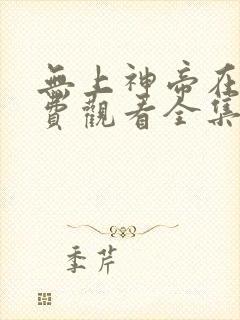 無上神帝在
費觀看全集
季芹